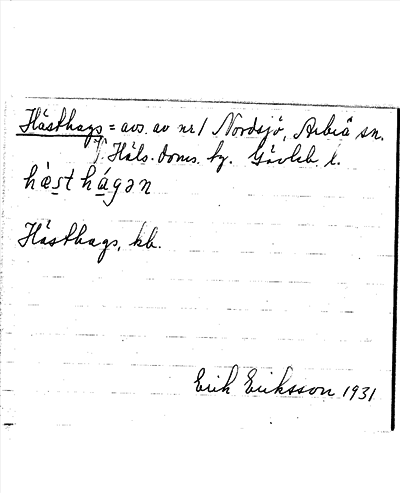 Hästhags = avs. av nr 1 Nordsjö, Arbrå sn.
Häls. doms. hg. Gävleb. l.
hæst hágən
Hästhags, kb.
Erik Eriksson 1931